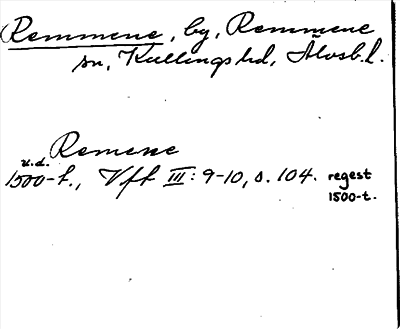 Remmene, by, Remmene
sn, Kullings hd, Älvsb. l.
Remene
u.d.
1500-t., Vft III: 9-10, s. 104. regest
1500-t.